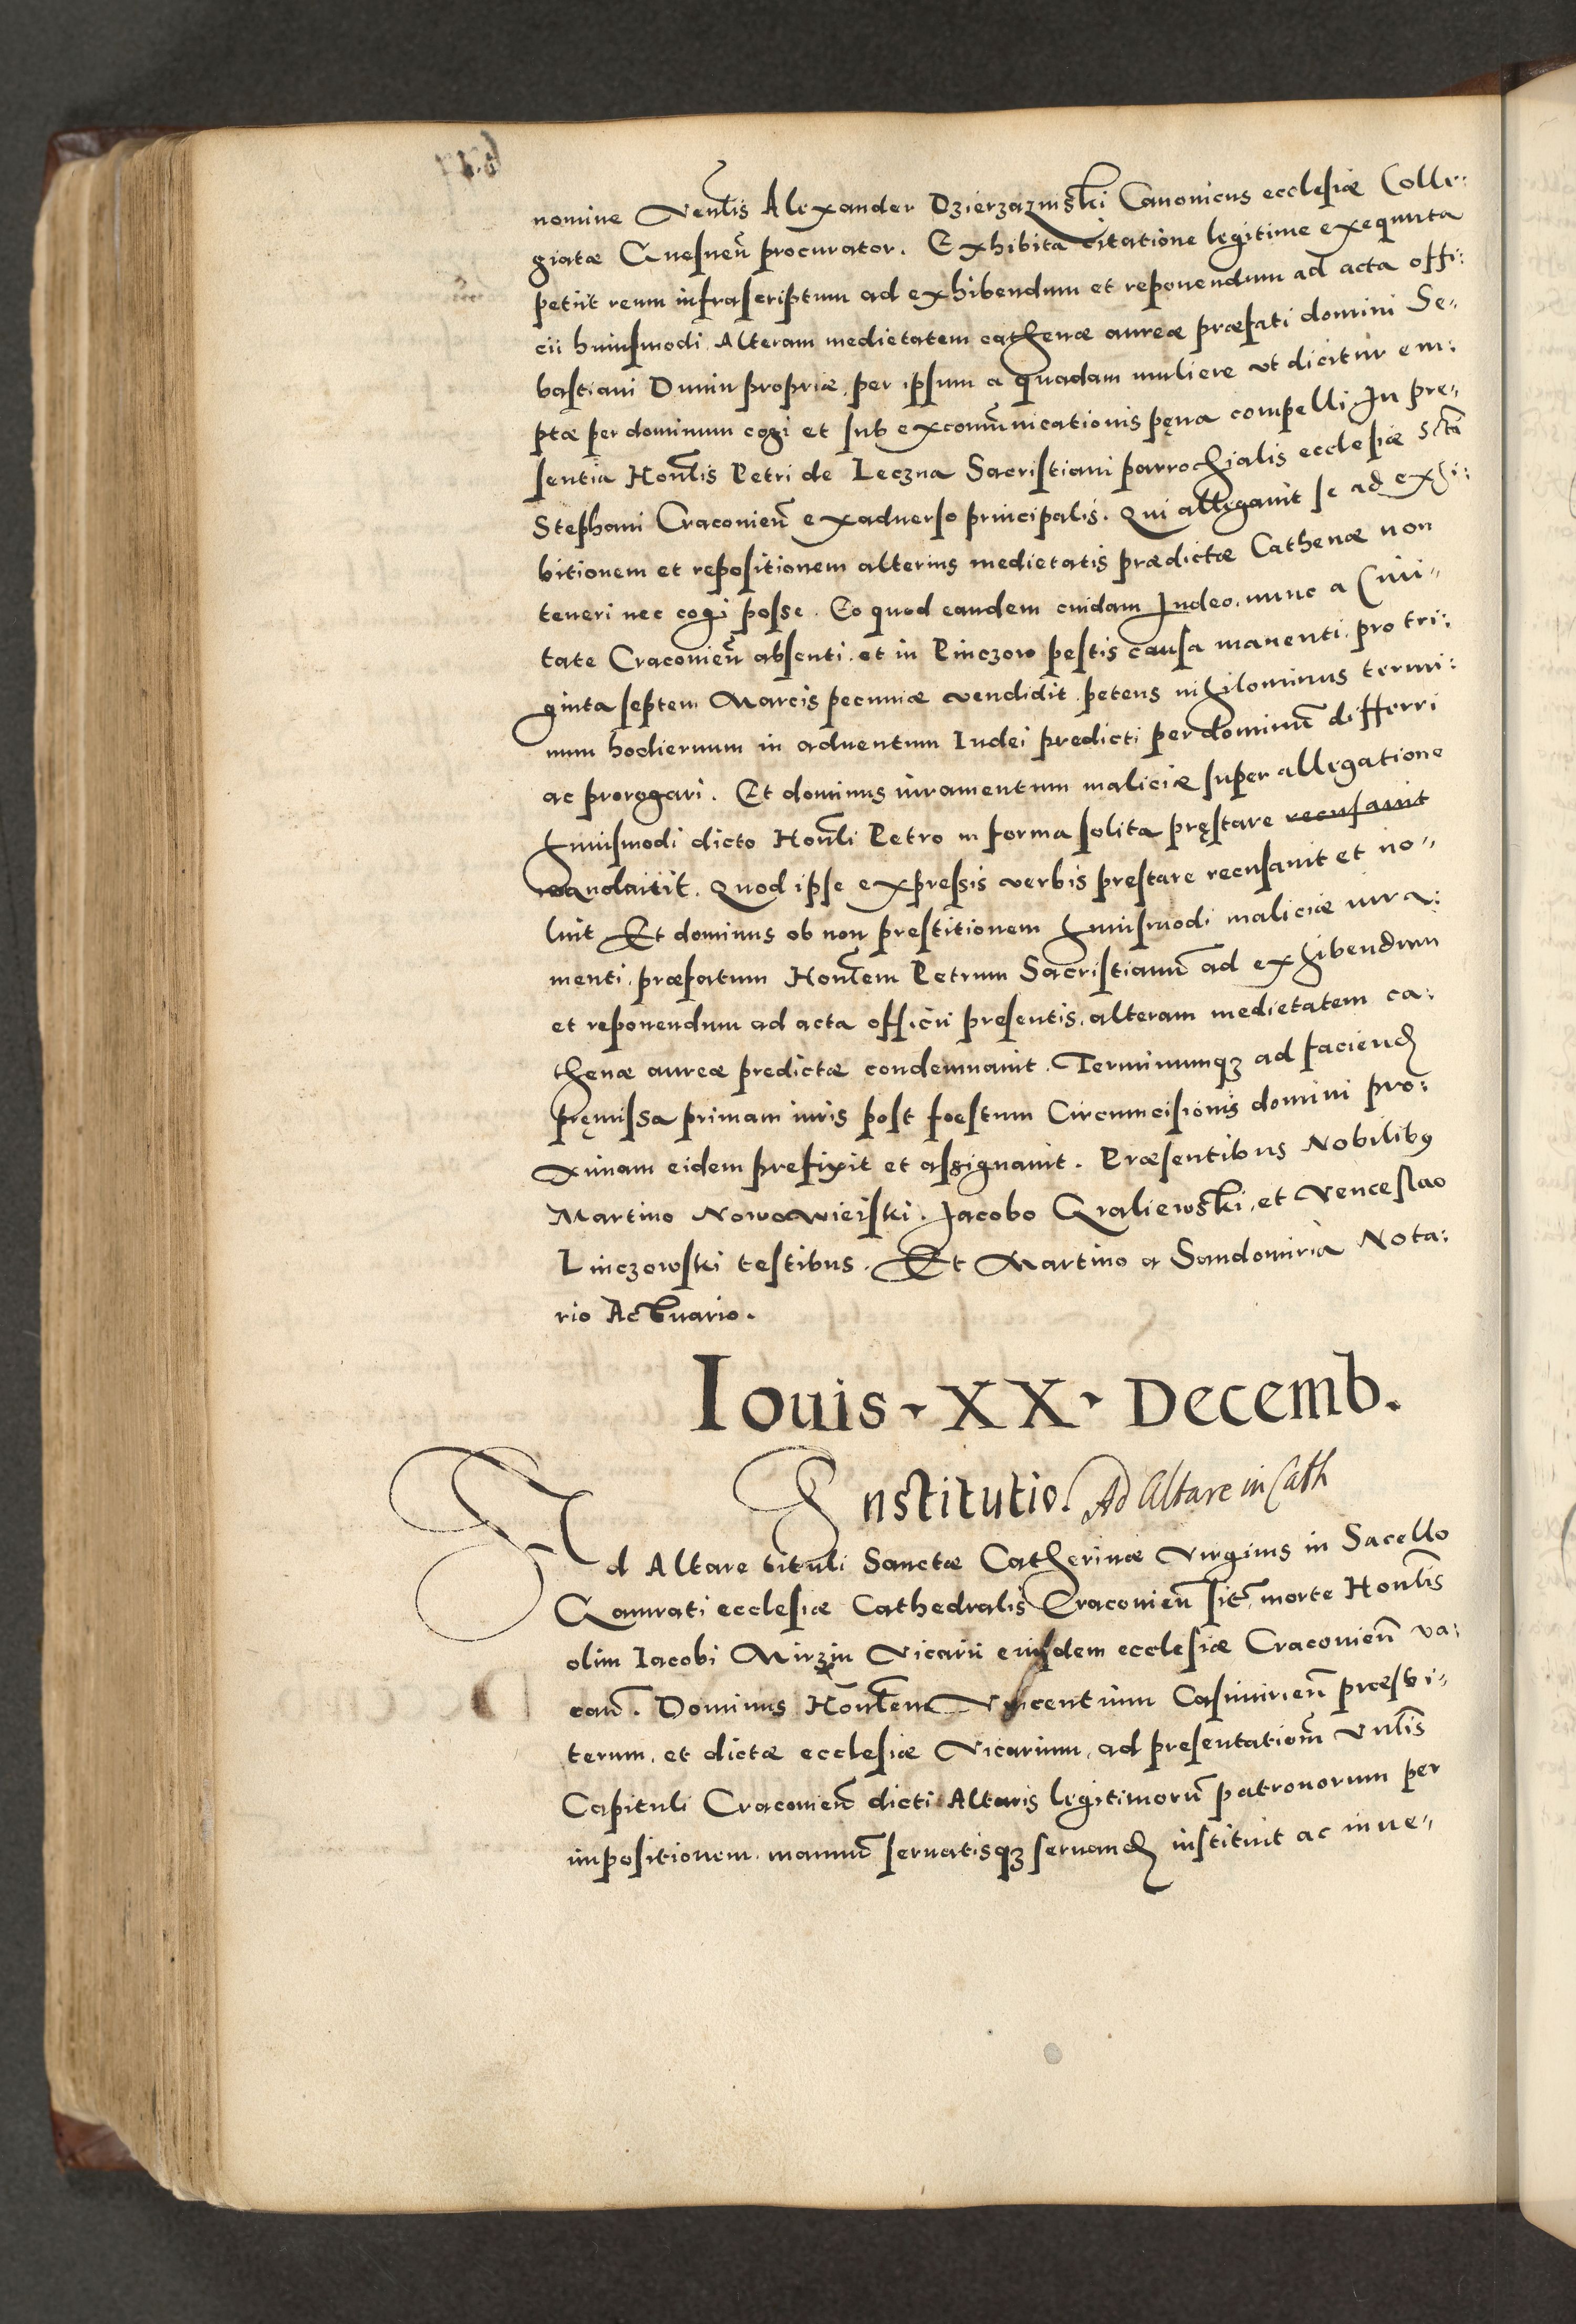 nomine Venlis Alexander Dzierzazniski Canonicus ecclesiæ Colle:
giatæ Gnesnen̄ procurator. Exhibita citatione legitime exequuta
petiit reum infrascriptum ad exhibendum et reponendum ad acta offi:
cii huiusmodi Alteram medietatem cathenæ aureæ præfati domini Se-
bastiani Dunin propriæ, per ipsum a quadam muliere vt dicitur em:
ptæ per dominum cogi et sub excom̄unicationis pęna compelli In pre-
sentia Honlis Petri de Leczna Sacristiani parrochialis ecclesiæ Scti
Stephani Craconien̄ exaduerso principalis. Qui allegauit se ad exhi:
bitionem et repositionem alterius medietatis prædictæ Cathenæ non
teneri nec cogi posse. Eo quod eandem cuidam Iudeo, nunc a Ciui-
tate Craconien̄ absenti, et in Pinczow pestis causa manenti, pro tri:
ginta septem Marcis pecuniæ vendidit, petens nihilominus termi:
num hodiernum in aduentum Iudei predicti per dominū differri
ac prorogari. Et dominus iuramentum maliciæ super allegatione
huiusmodi dicto Honli Petro in forma solita pręstare recusauit
mandauit. Quod ipse expressis verbis prestare recusauit et no-
luit Et dominus ob non prestitionem huiusmodi maliciæ iura:
menti, præfatum Honlem Petrum Sacristianū ad exhibendum
et reponendum ad acta officii presentis, alteram medietatem ca:
thenæ aureæ predictæ condemnauit. Terminumqȝ ad faciend
pręmissa primam iuris post foestum Circumcisionis domini pro:
ximam eidem prefixit et assignauit. Præsentibus Nobilibꝰ
Martino Nowowieiski. Jacobo Graliewski, et Venceslao
Linczowski testibus. Et Martino a Sandomiria Nota:
rio Actuario.
Iouis XX Decemb.
Institutio. Ad Altare in Cath
Ad Altare tituli Sanctæ Catherinæ Virginis in Sacello
Gamrati ecclesiæ Cathedralis Craconien̄ sit̄, morte Honlis
olim Iacobi Mirzin Vicarii eiusdem ecclesiæ Craconien̄ va:
can̄. Dominus Honlem Vincentium Casimirien̄ præsbi-
terum, et dictæ ecclesiæ Vicarium, ad presentationm̄ Vnlis
Capituli Craconien̄ dicti Altaris legitimorū patronorum per
impositionem, manuū seruatisqȝ seruand instituit ac inue-